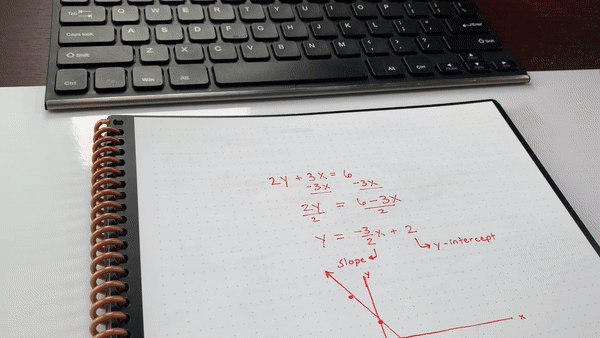 Tab Q W E R T Y U I O P
Caps lock A S D F G H J K L Enter
Shift Z X C V B N M Shift
Ctrl Win Alt Alt Ctrl
2y + 3x = 6
-3x -3x
2y = 6 - 3x
2 2
y = -3/2 x + 2
slope y-intercept
y
x